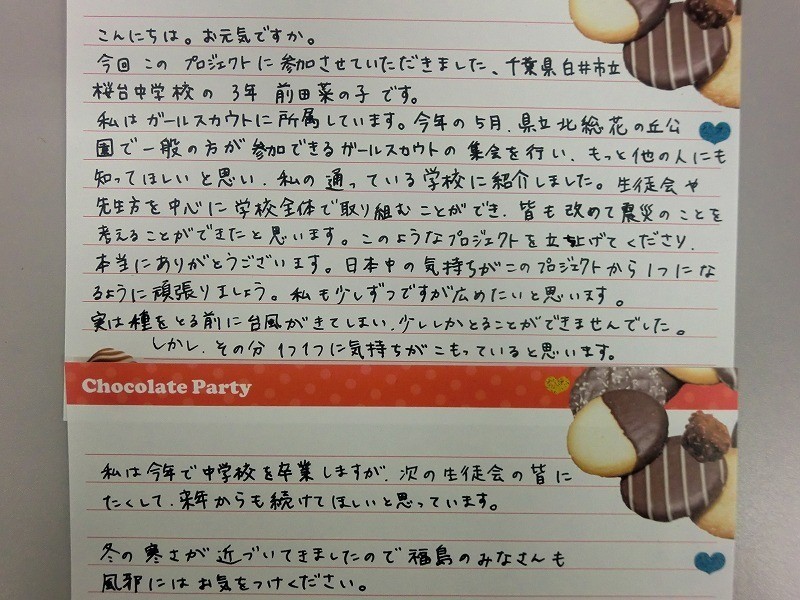 こんにちは。お元気ですか。
今回 この プロジェクトに 参加させていただきました、千葉県白井市立
桜台中学校の 3年 前田菜の子です。
私はガールスカウトに所属しています。今年の5月、県立北総花の丘公
園で一般の方が参加できるガールスカウトの集会を行い、もっと他の人にも
知ってほしいと思い、私の通っている学校に紹介しました。生徒会や
先生方を中心に学校全体で取り組むことができ、皆も改めて震災のことを
考えることができたと思います。このようなプロジェクトを立ち上げてくださり、
本当にありがとうございます。日本中の気持ちがこのプロジェクトから1つにな
るように頑張りましょう。私も少しずつですが広めたいと思います。
実は種をとる前に台風がきてしまい、少ししかとることができませんでした。
しかし、その分1つ1つに気持ちがこもっていると思います。
Chocolate Party
私は今年で中学校を卒業しますが、次の生徒会の皆に
たくして、来年からも続けてほしいと思っています。
冬の寒さが近づいてきましたので福島のみなさんも
風邪にはお気をつけください。